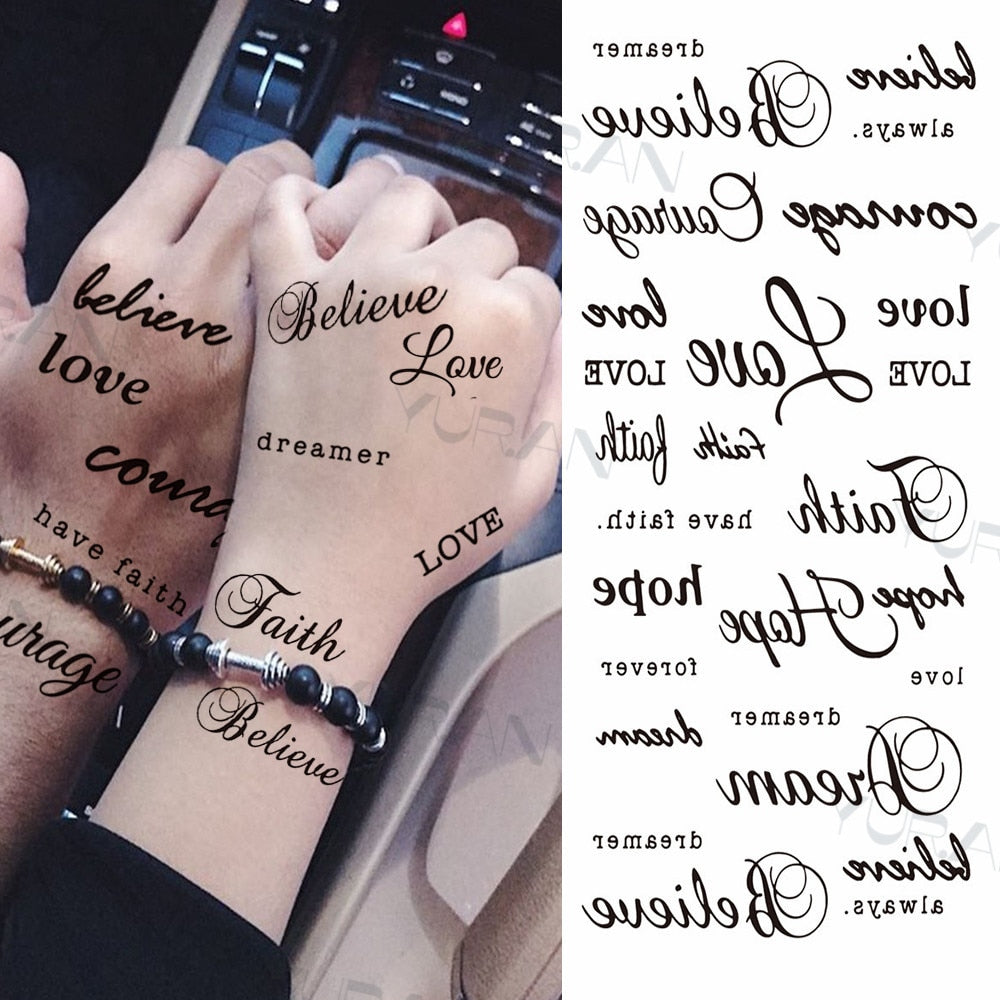 believe
love
courag
have faith
urage
Believe
Love
dreamer
LOVE
Faith
Believe
MENU
YURAN
dreamer
believe
Believe
always.
Courage courage
love
love
LOVE Love LOVE
faith faith
Faith
have faith.
hope
Hope hope
forever
love
dream
dreamer
Dream
dreamer
believe
Believe
always.
YURAN